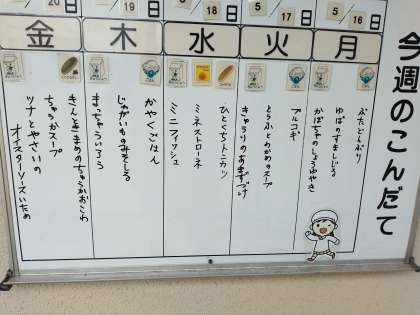 今週のこんだて
5/16
月
ぶたどんぶり
ゆばのすましじる
かぼちゃのしょうゆやき
5/17
火
プルコギ
とうふとわかめのスープ
きゅうりのあまずづけ
5/18
水
ひとくちトンカツ
ミネストローネ
ミニフィッシュ
19日
木
かやくごはん
じゃがいものみそしる
まっちゃういろう
20日
金
きんときまめのちゅうかおこわ
ちゅうかスープ
ツナとやさいの
オイスターソースいため